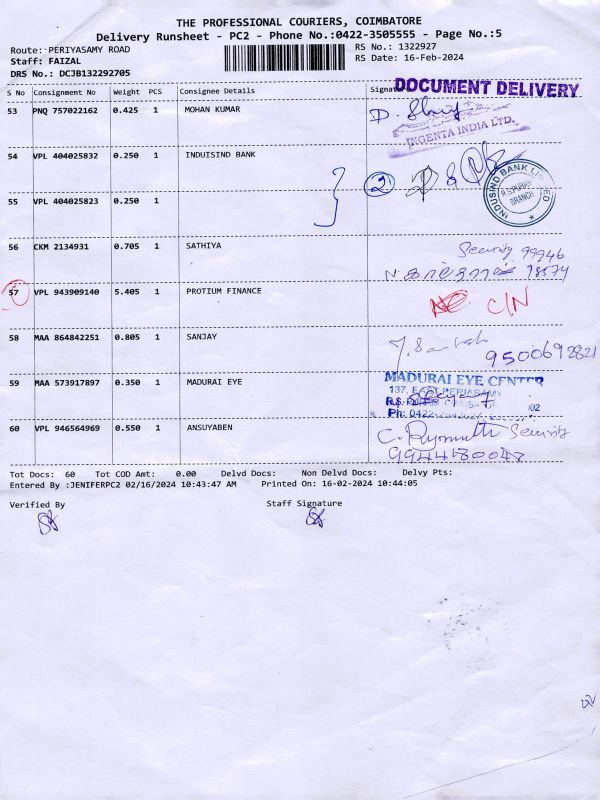 THE PROFESSIONAL COURIERS, COIMBATORE
Delivery Runsheet - PC2 - Phone No.:0422-3505555 - Page No.:5
Route: PERIYASAMY ROAD
RS No.: 1322927
Staff: FAIZAL
RS Date: 16-Feb-2024
DRS No.: DCJB132292705
DOCUMENT DELIVERY
S No Consignment No Weight PCS Consignee Details Signature
53 PNQ 757022162 0.425 1 MOHAN KUMAR
INGENTA INDIA LTD.
54 VPL 404025832 0.250 1 INDUISIND BANK
2
INDUSIND BANK LIMITED
BRANCH
55 VPL 404025823 0.250 1
56 CKM 2134931 0.705 1 SATHIYA
Security 99946
78574
57 VPL 943909140 5.405 1 PROTIUM FINANCE
C/N
58 MAA 864842251 0.805 1 SANJAY
9500692821
59 MAA 573917897 0.350 1 MADURAI EYE
MADURAI EYE CENTER
137, EAST PERIASAMY
R.S.
Ph: 0422-
60 VPL 946564969 0.550 1 ANSUYABEN
C. Security
9944180048
Tot Docs: 60 Tot COD Amt: 0.00 Delvd Docs: Non Delvd Docs: Delvy Pts:
Entered By :JENIFERPC2 02/16/2024 10:43:47 AM Printed On: 16-02-2024 10:44:05
Verified By Staff Signature